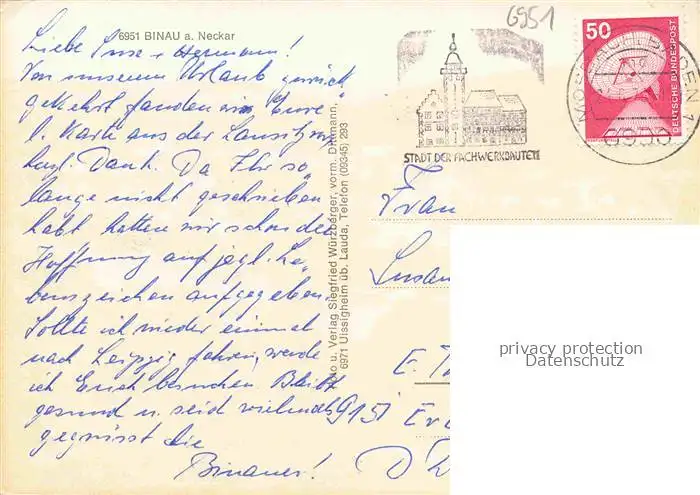 6951 BINAU a. Neckar
6951
Liebe Suse + Hermann!
Von unserem Urlaub zurück
gekehrt fanden wir Eure
l. Karte aus der Lausitz vor
hzgl. Dank. Da Ihr so
lange nicht geschrieben
habt hatten wir schon die
Hoffnung auf jegl. Le-
benszeichen aufgegeben.
Sollte ich wieder einmal
nach Leipzig fahren, werde
ich Euch besuchen. Bleibt
gesund u. seid vielmals
gegrüsst die
Binauer!
Foto u. Verlag Siegfried Würzberger, vorm. Dittmann,
6971 Uissigheim üb. Lauda, Telefon (09345) 293
STADT DER FACHWERKBAUTEN
50
DEUTSCHE BUNDESPOST
6950
Frau
Susan
E. T
9151
D
privacy protection
Datenschutz